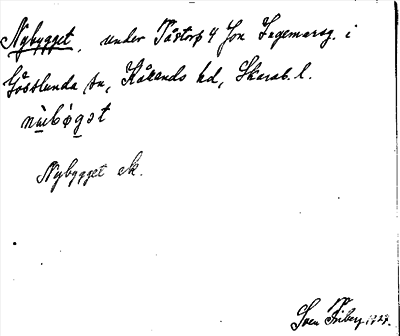 Nybygget, under Tåstorp 4 Jon Ingemarsg. i
Gösslunda sn, Kåkinds hd, Skarab. l.
nẁbøgət
Nybygget Ek.
Sven Friberg 1927.